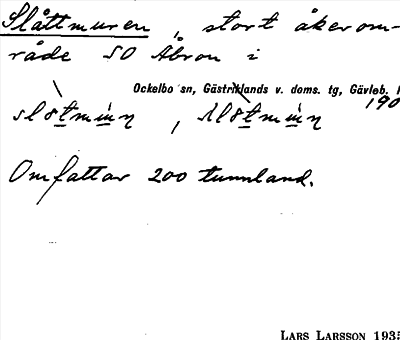 Slåttmuren, stort åkerom-
råde SO Åbron i
Ockelbo sn, Gästriklands v. doms. tg, Gävleb. l
190
Omfattar 200 tunnland.
LARS LARSSON 1935